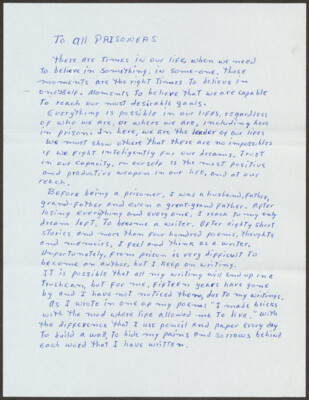 To all PRISONERS
there are times in our life, when we need
to believe in something, in someone. those
moments are the right times to believe in
oneself. Moments to believe that we are capable
to reach our most desirable goals.
Everything is possible in our lifes, regardless
of who we are, or where we are, including here
in prison. In here, we are the leader of our lives
we must show others that there are no impossibles
if we fight intelligently for our dreams. trust
in our capacity, in ourself is the most positive
and productive weapon in our life, and at our
reach.
Before being a prisoner, I was a husband, father,
grand-father and even a great-grand father. After
losing everything and everyone, I reach to my only
dream left, to become a writer. After eighty short
stories and more than four hundred poems, thoughts
and memoirs, I feel and think as a writer.
Unfortunately, from prison is very difficult to
become an author, but I keep on writing.
It is possible that all my writing will end up in a
trashcan, but for me, fifteen years have gone
by and I have not noticed them, due to my writings.
As I wrote in one of my poems "I made bricks
with the mod where life allowed me to live," with
the difference that I use pencil and paper every day
to build a wall, to hide my pains and sorrows behind
each word that I have written.